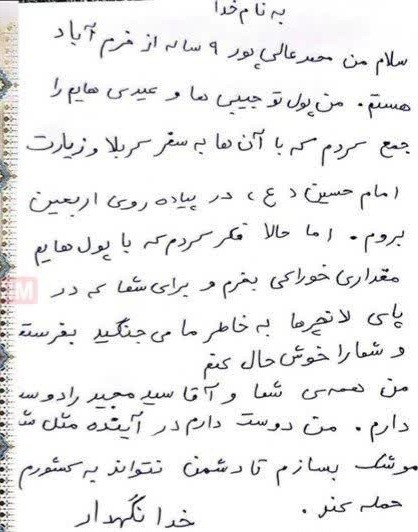 به نام خدا
سلام من محمد عالی پور ۹ ساله از خرم آباد
هستم. من پول تو جیبی ها و عیدی هایم را
جمع کردم که با آن ها به سفر کربلا و زیارت
امام حسین (ع)، در پیاده روی اربعین
بروم. اما حالا فکر کردم که با پول هایم
مقداری خوراکی بخرم و برای شما که در
پای لانچرها به خاطر ما می جنگید بفرستم
و شما را خوش حال کنم
من همه‌ی شما و آقا سید مجید را دوست
دارم. من دوست دارم در آینده مثل شما
موشک بسازم تا دشمن نتواند به کشورم
حمله کند.
خدا نگهدار
M